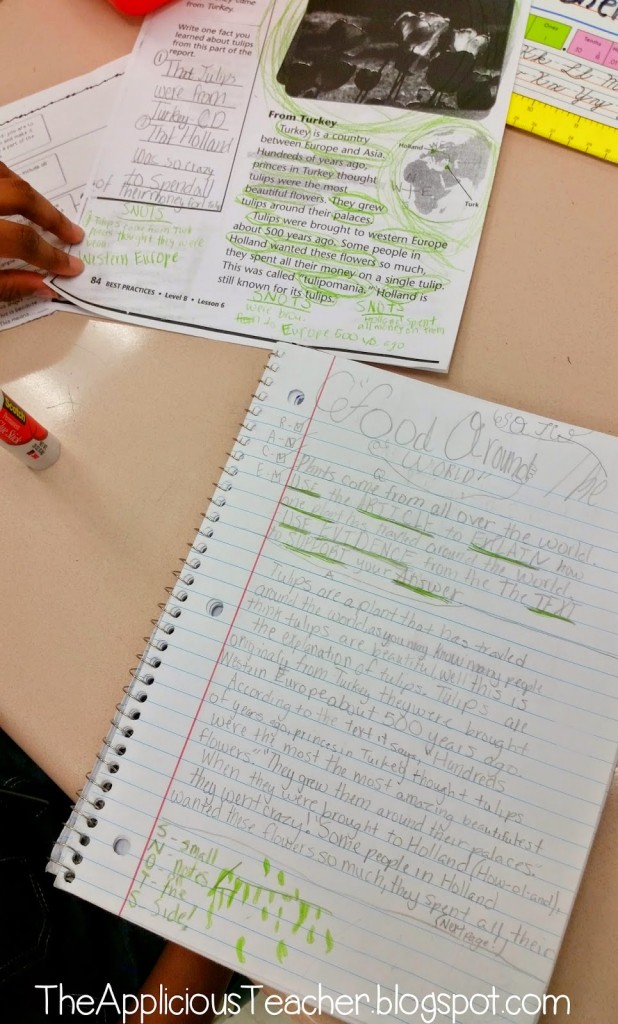 from Turkey.
Write one fact you
learned about tulips
from this part of the
report.
That Tulips
were from
Turkey
That Holland
was so crazy
to Spend all
their money for
SNOTS
Western Europe
84 BEST PRACTICES • Level B • Lesson 6
From Turkey
Turkey is a country
between Europe and Asia.
Hundreds of years ago,
princes in Turkey thought
tulips were the most
beautiful flowers. They grew
tulips around their palaces.
Tulips were brought to western Europe
about 500 years ago. Some people in
Holland wanted these flowers so much,
they spent all their money on a single tulip.
This was called "tulipomania." Holland is
still known for its tulips.
Holland
N
W E
Turk
SNOTS
were brou
to Europe 500 ys ago
SNOTS
Holland spent
all money on them
Scotch
R-
A-
C-
E-
Food Around The
WORLD
Plants come from all over the world.
USE the ARTICLE to EXPLAIN how
one plant has traveled around the world.
USE EVIDENCE from the The TEXT
to SUPPORT your Answer
Tulips are a plant that has traled
around the world as you may know many people
think tulips are beautiful well this is
the explanation of tulips. Tulips are
originaly from Turkey they were brought
Western Europe about 500 years ago.
According to the text it says, "Hundreds
of years ago, princes in Turkey thought tulips
were thy most the most amazing beautifulest
flowers." They grew them around their palaces.
When they were brought to Holland (How-ol-and),
they went crazy! "Some people in Holland
wanted these flowers so much, they spent all their
(Next Page!)
S - Small
N - Notes
O - on
T - the
S - Side!
TheAppliciousTeacher.blogspot.com